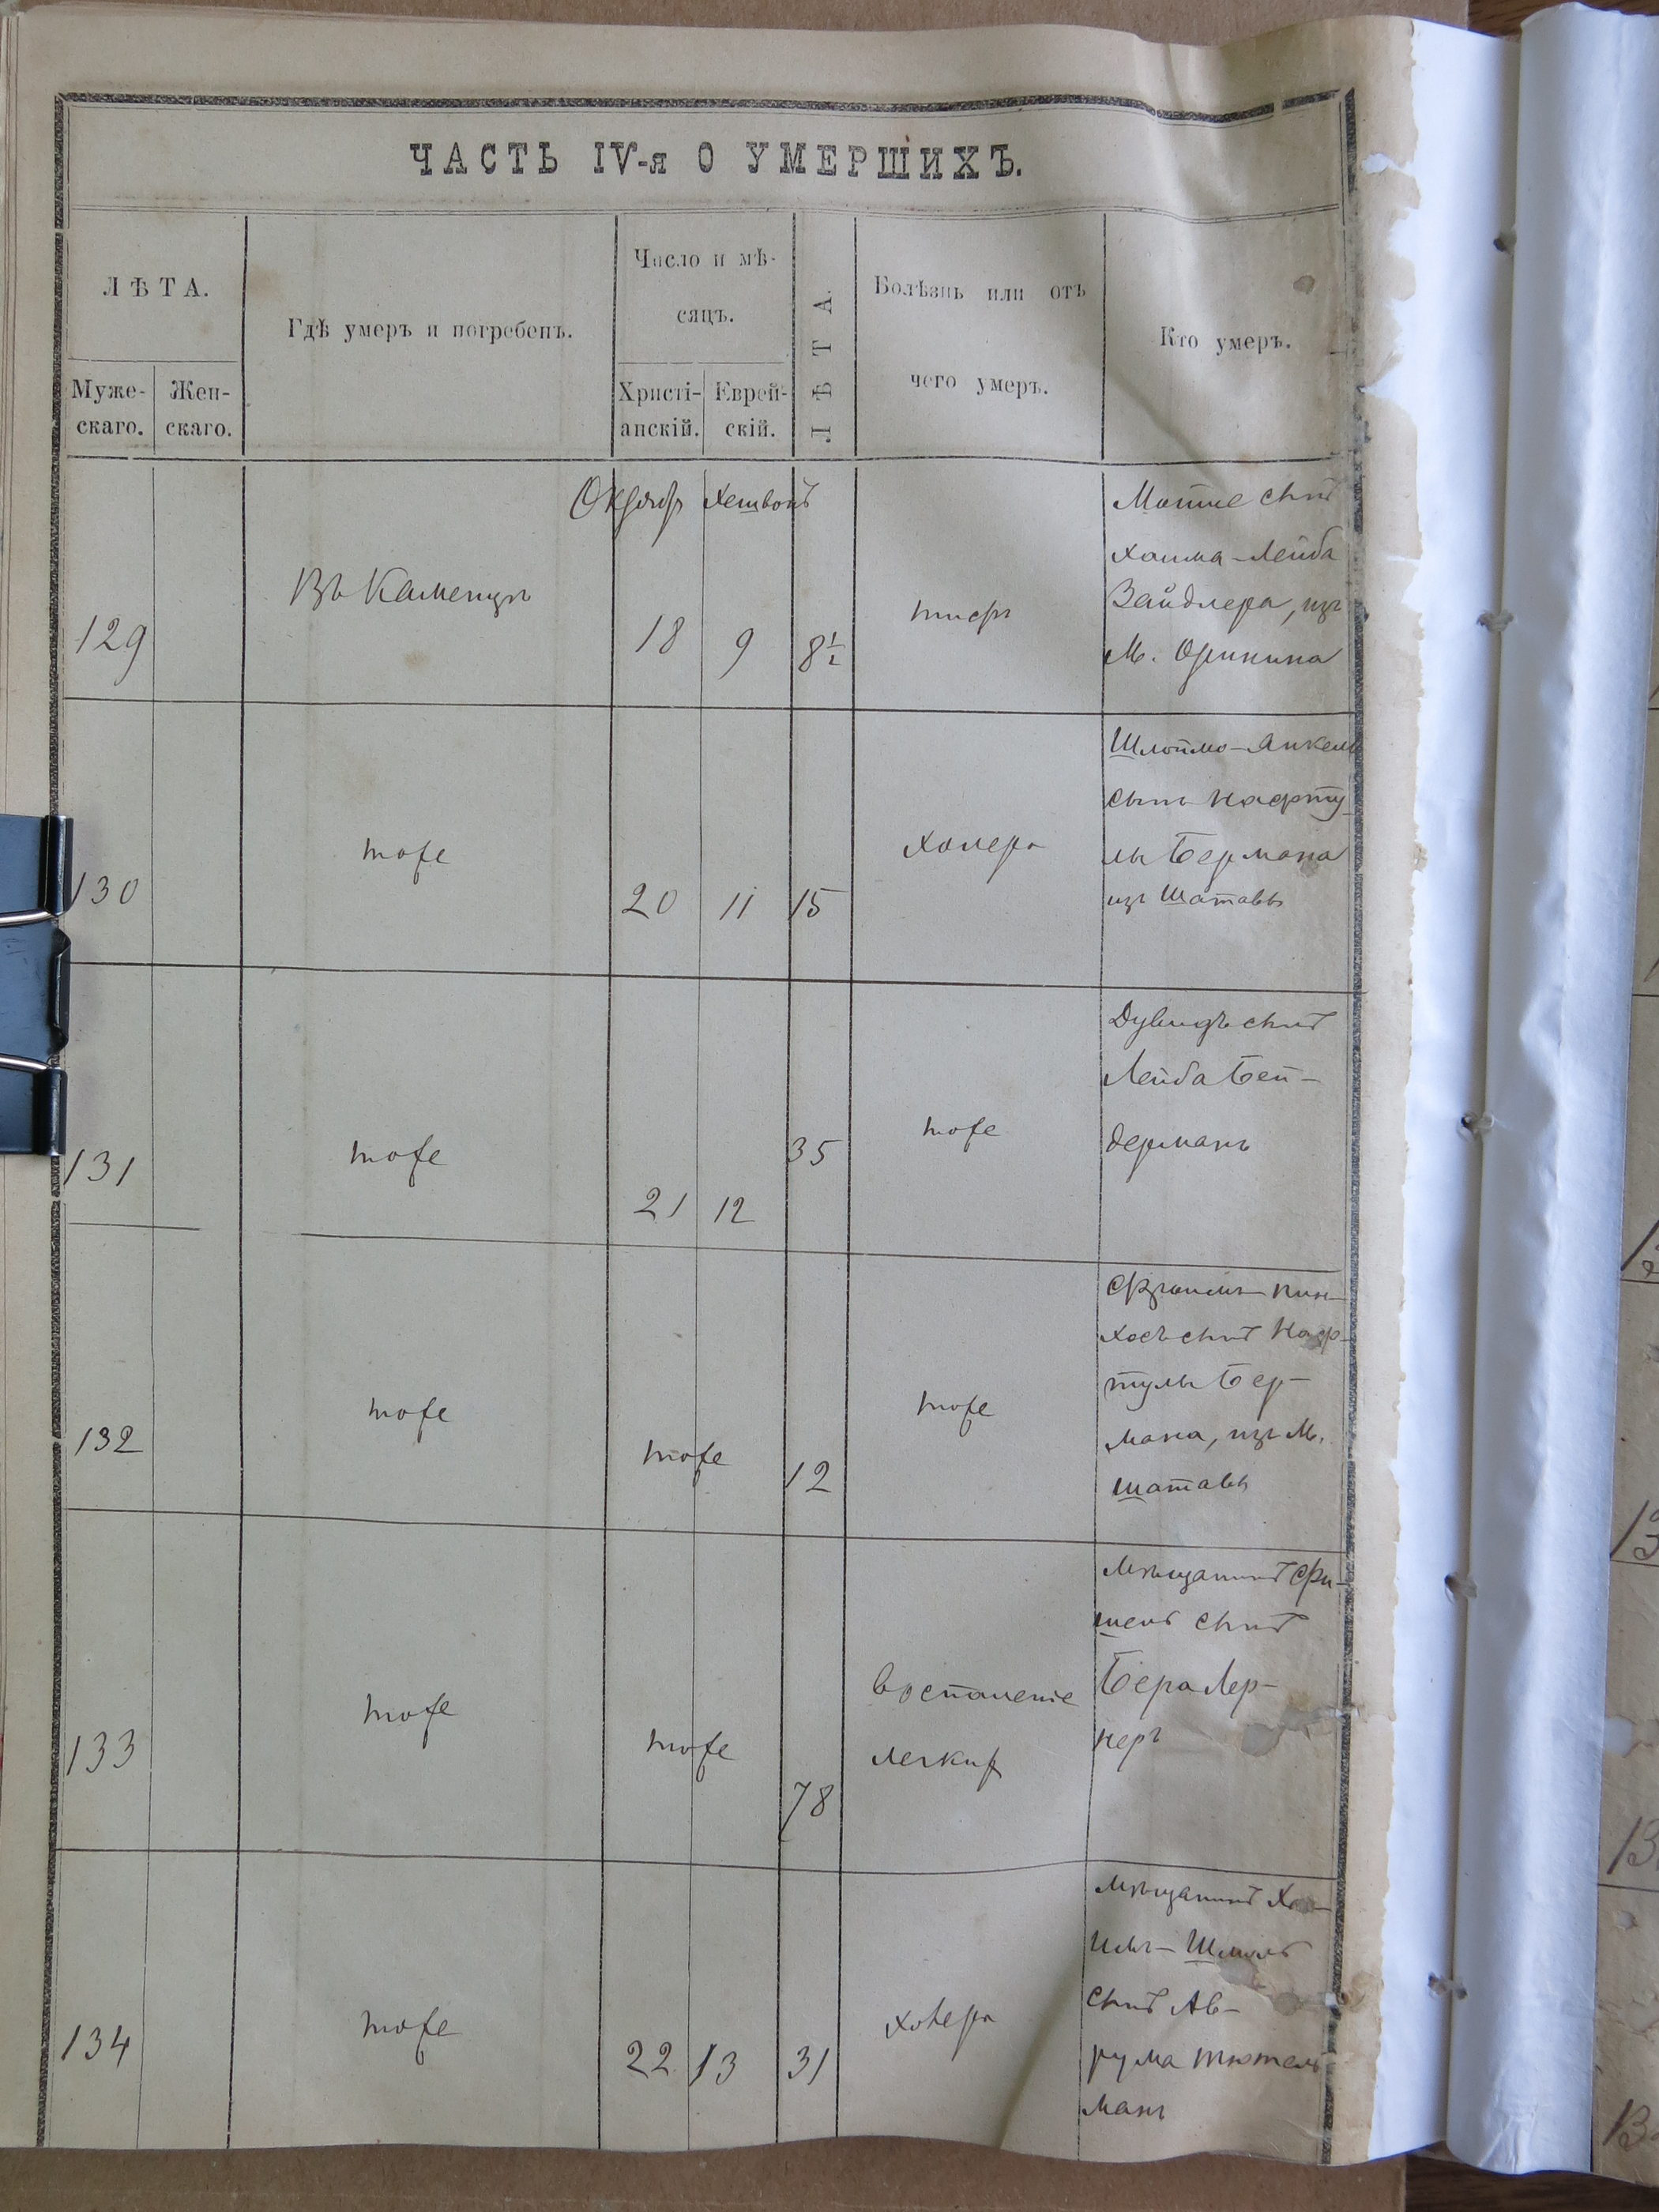 ЧАСТЬ IV-я О УМЕРШИХЪ.
ЛѢТА.
Муже-
скаго.
Жен-
скаго.
Гдѣ умеръ и погребенъ.
Число и мѣ-
сяцъ.
Христі-
анскій.
Еврей-
скій.
ЛѢТА.
Болѣзнь или отъ
чего умеръ.
Кто умеръ.
Октябр Хешвонъ
129
Въ Каменцѣ
18 9 8½
тифъ
Мотие сынъ
Хаима-Лейба
Вайдлера, изъ
м. Оринина
130
тоже
20 11 15
холера
Шлоймо-Янкель
сынъ Нафту-
лы Бермана
изъ Шатавы
131
тоже
21 12
35
тоже
Дувидъ сынъ
Лейба Бей-
дерманъ
132
тоже
тоже
12
тоже
Сроиль-Пин-
хосъ сынъ Наф-
тулы Бер-
мана, изъ м.
Шатавы
133
тоже
тоже
78
Воспаление
легких
Мѣщанинъ Фи-
шель сынъ
Бера Лер-
неръ
134
тоже
22 13 31
холера
Мѣщанинъ
сынъ Ав-
рума Тютель
манъ